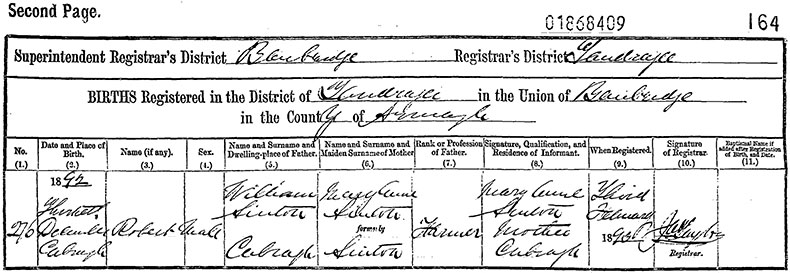 Second Page.
01868409
164
Superintendent Registrar's District Banbridge Registrar's District Tandragee
BIRTHS Registered in the District of Tandragee in the Union of Banbridge
in the County of Armagh
No. Date and Place of Birth. Name (if any). Sex. Name and Surname and Dwelling-place of Father. Name and Surname and Maiden Surname of Mother Rank or Profession of Father. Signature, Qualification, and Residence of Informant. When Registered. Signature of Registrar. Baptismal Name if added after Registration of Birth, and Date.
(1.) (2.) (3.) (4.) (5.) (6.) (7.) (8.) (9.) (10.) (11.)
1892
William Mary Anne Mary Anne Third
Sinton Sinton Sinton February
276 December Robert Male formerly Farmer Mother
Cabragh Cabragh Sinton Cabragh 1893
Registrar.